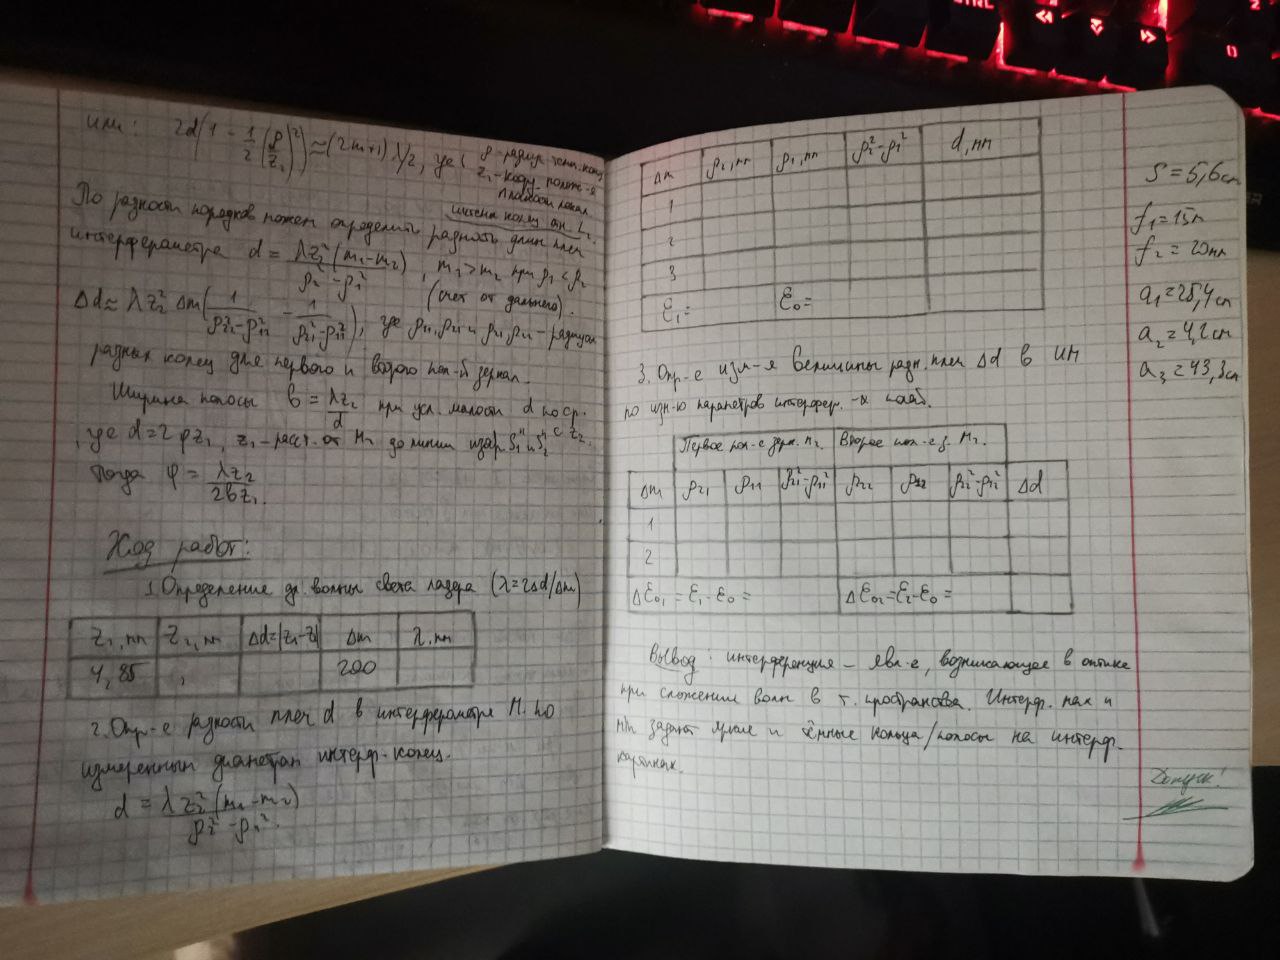 или: 2d(1 - 1/2 (ρ/z₁)²) ≈ (2m+1) λ/2, где (ρ-радиус темн. кол
z₁-коорд. полож-я
плоскости локал.
интенс колец отн. L₂.
По разности порядков можем определить разность длин плеч
интерферометра d = λz₂²(m₁-m₂)/(ρ₂²-ρ₁²), m₁>m₂ при ρ₁<ρ₂
(счет от дальнего).
Δd ≈ λz₂² Δm(1/(ρ²₂₁-ρ²₁₁) - 1/(ρ²₂₁-ρ²₁₂)), где ρ₁₁, ρ₂₁ и ρ₁₂, ρ₂₂ - радиусы
разных колец для первого и второго пол-й зеркал.
Ширина полосы b = λz₂/d при усл. малости d по ср.
с z₂.
где d=2φz₁, z₁-расст. от M₁ до линии изобр S₁'' и S₂''
Тогда φ = λz₂/2bz₁.
Ход работ:
1. Определение дл. волны света лазера (λ=2Δd/Δm)
z₁, мм z₂, мм Δd=|z₁-z| Δm λ, нм
4,85 , 200
2. Опр-е разности плеч d в интерферометре М. по
измеренным диаметрам интерф. колец.
d = λz₂²(m₁-m₂)/(ρ₂²-ρ₁²).
Δm ρ₂, мм ρ₁, мм ρ₂²-ρ₁² d, мм
1
2
3
ε₁= ε₀=
3. Опр-е изм-я величины разн. плеч Δd в ИМ
по изм-ю параметров интерфер.
Первое пол-е зерк. М₂ Второе пол-е з. М₂.
Δm ρ₂₁ ρ₁₁ ρ²₂₁-ρ²₁₁ ρ₂₂ ρ₁₂ ρ²₂₂-ρ²₁₂ Δd
1
2
Δε₀₁ = ε₁-ε₀ = Δε₀₂=ε₂-ε₀ =
Вывод: интерференция - явл-е, возникающее в оптике
при сложении волн в т. пространства. Интерф. мах и
min задают яркие и тёмные кольца/полосы на интерф.
картинах.
S=5,6см
f₁=15м
f₂=20мм
a₁=25,4см
a₂=4,2см
a₃=43,3см
Допуск!